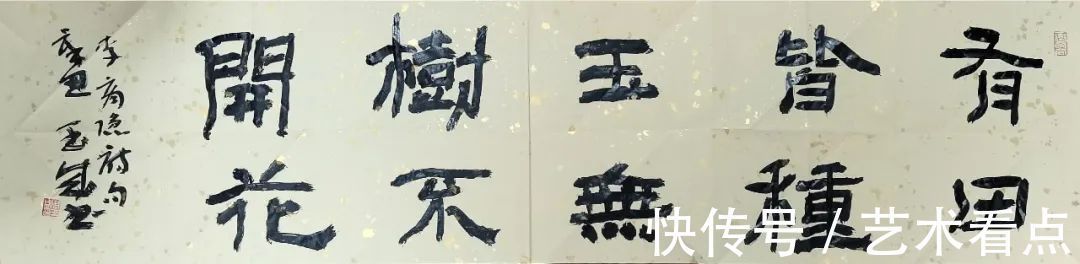 有田
皆種
玉無
樹不
開花
李商隐诗句
辛丑
快传号 / 艺术看点